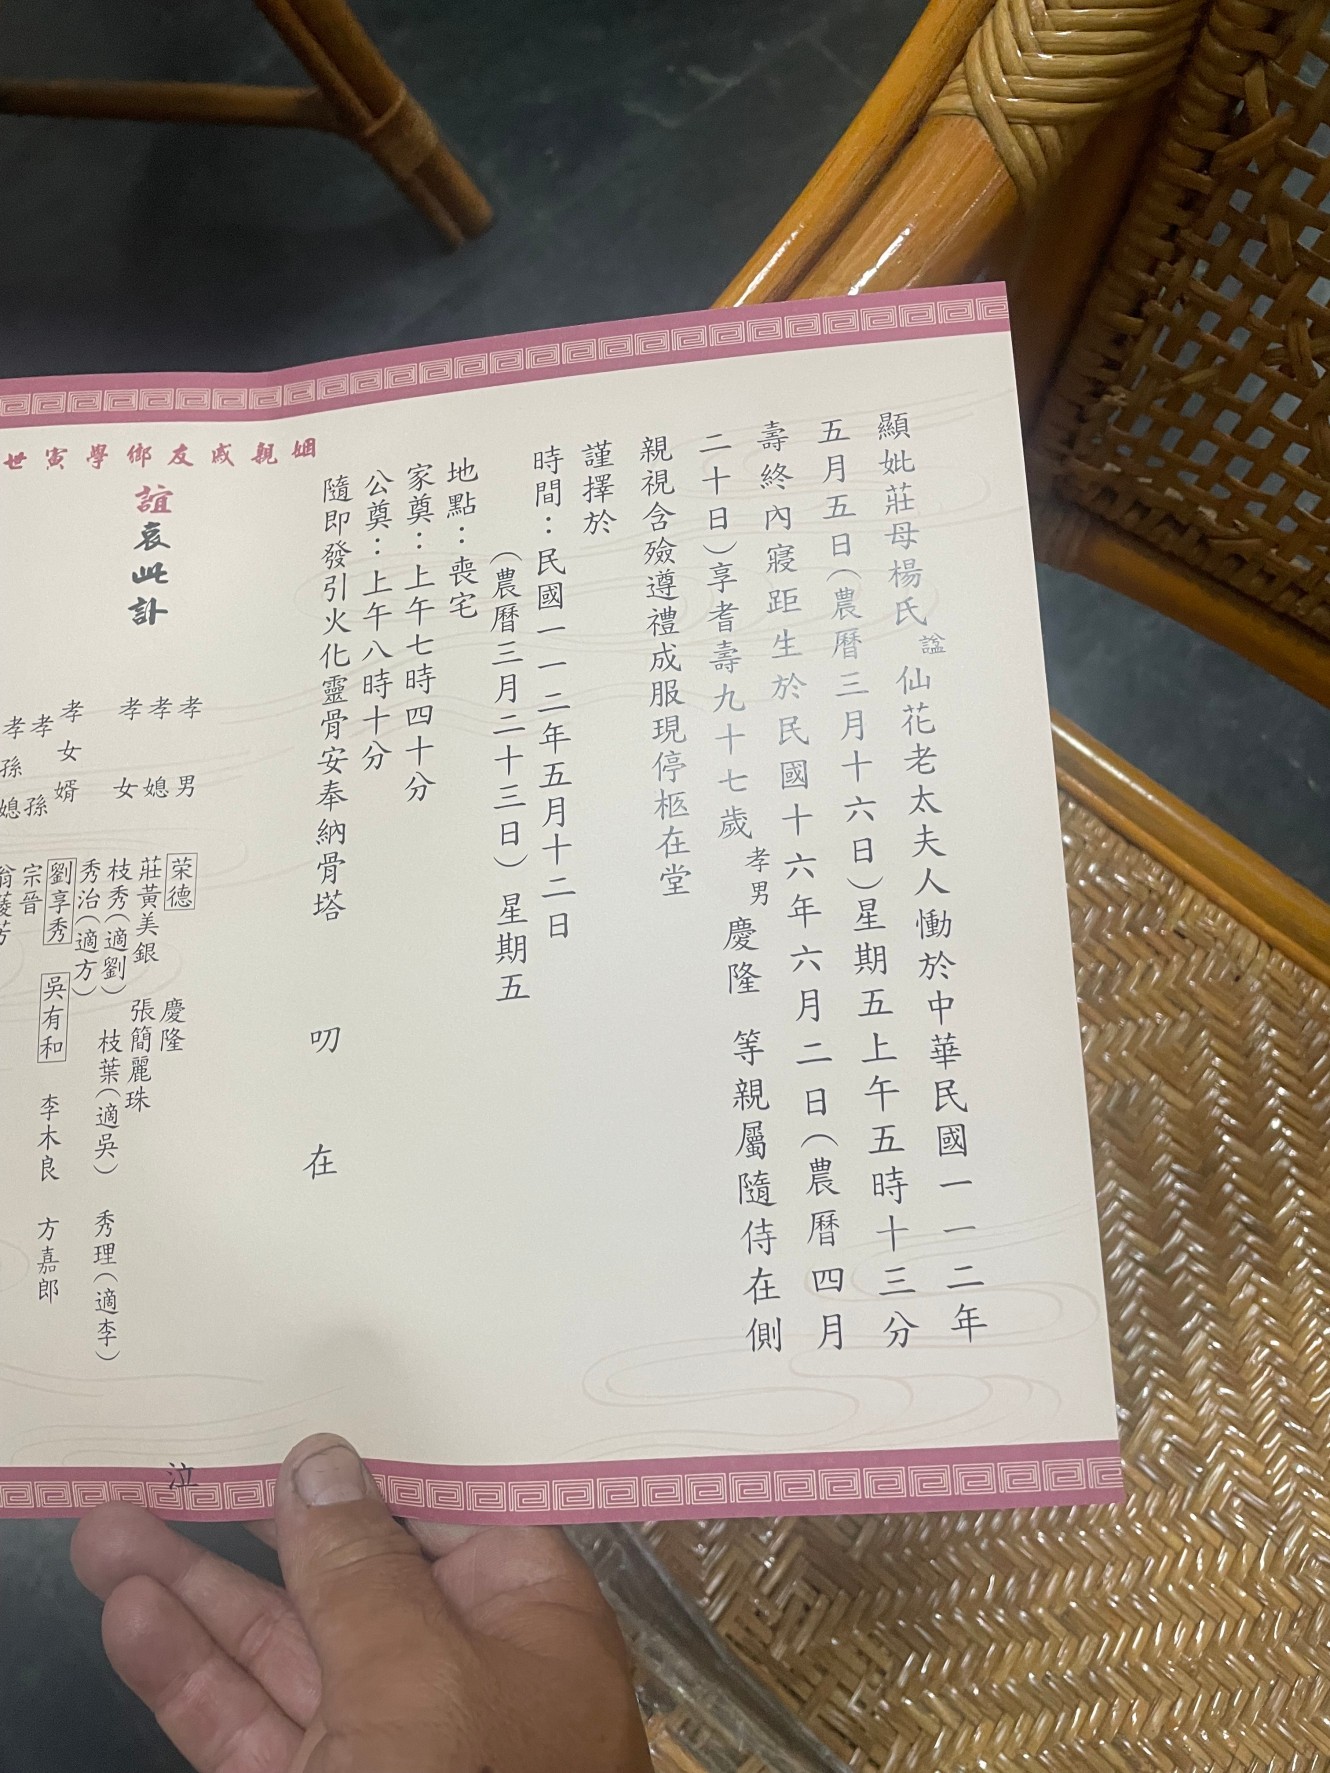 顯妣莊母楊氏諡仙花老太夫人慟於中華民國一一二年
五月五日(農曆三月十六日)星期五上午五時十三分
壽終內寢距生於民國十六年六月二日(農曆四月
二十日)享耆壽九十七歲孝男慶隆 等親屬隨侍在側
親視含殮遵禮成服現停柩在堂
謹擇於
時間：民國一一二年五月十二日
(農曆三月二十三日)星期五
地點：喪宅
家奠：上午七時四十分
公奠：上午八時十分
隨即發引火化靈骨安奉納骨塔
叨 在
姻親戚友鄉學寅世
誼哀此訃
孝男 荣德 慶隆
孝媳 莊黃美銀 張簡麗珠
孝女 枝秀(適劉) 枝葉(適吳) 秀理(適李)
秀治(適方)
孝女婿 劉享秀 吳有和 李木良 方嘉郎
孝孫 宗晉
孝孫媳
泣